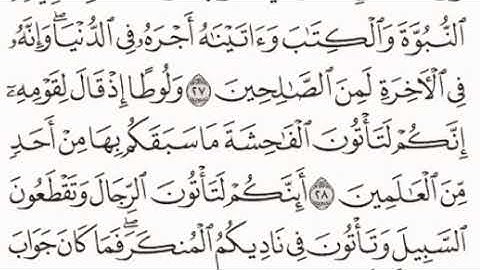 ٱلنُّبُوَّةَ وَٱلْكِتَٰبَ وَءَاتَيْنَٰهُ أَجْرَهُۥ فِى ٱلدُّنْيَا ۖ وَإِنَّهُۥ
فِى ٱلْءَاخِرَةِ لَمِنَ ٱلصَّٰلِحِينَ ٢٧ وَلُوطًا إِذْ قَالَ لِقَوْمِهِۦٓ
إِنَّكُمْ لَتَأْتُونَ ٱلْفَٰحِشَةَ مَا سَبَقَكُم بِهَا مِنْ أَحَدٍ
مِّنَ ٱلْعَٰلَمِينَ ٢٨ أَئِنَّكُمْ لَتَأْتُونَ ٱلرِّجَالَ وَتَقْطَعُونَ
ٱلسَّبِيلَ وَتَأْتُونَ فِى نَادِيكُمُ ٱلْمُنكَرَ ۖ فَمَا كَانَ جَوَابَ